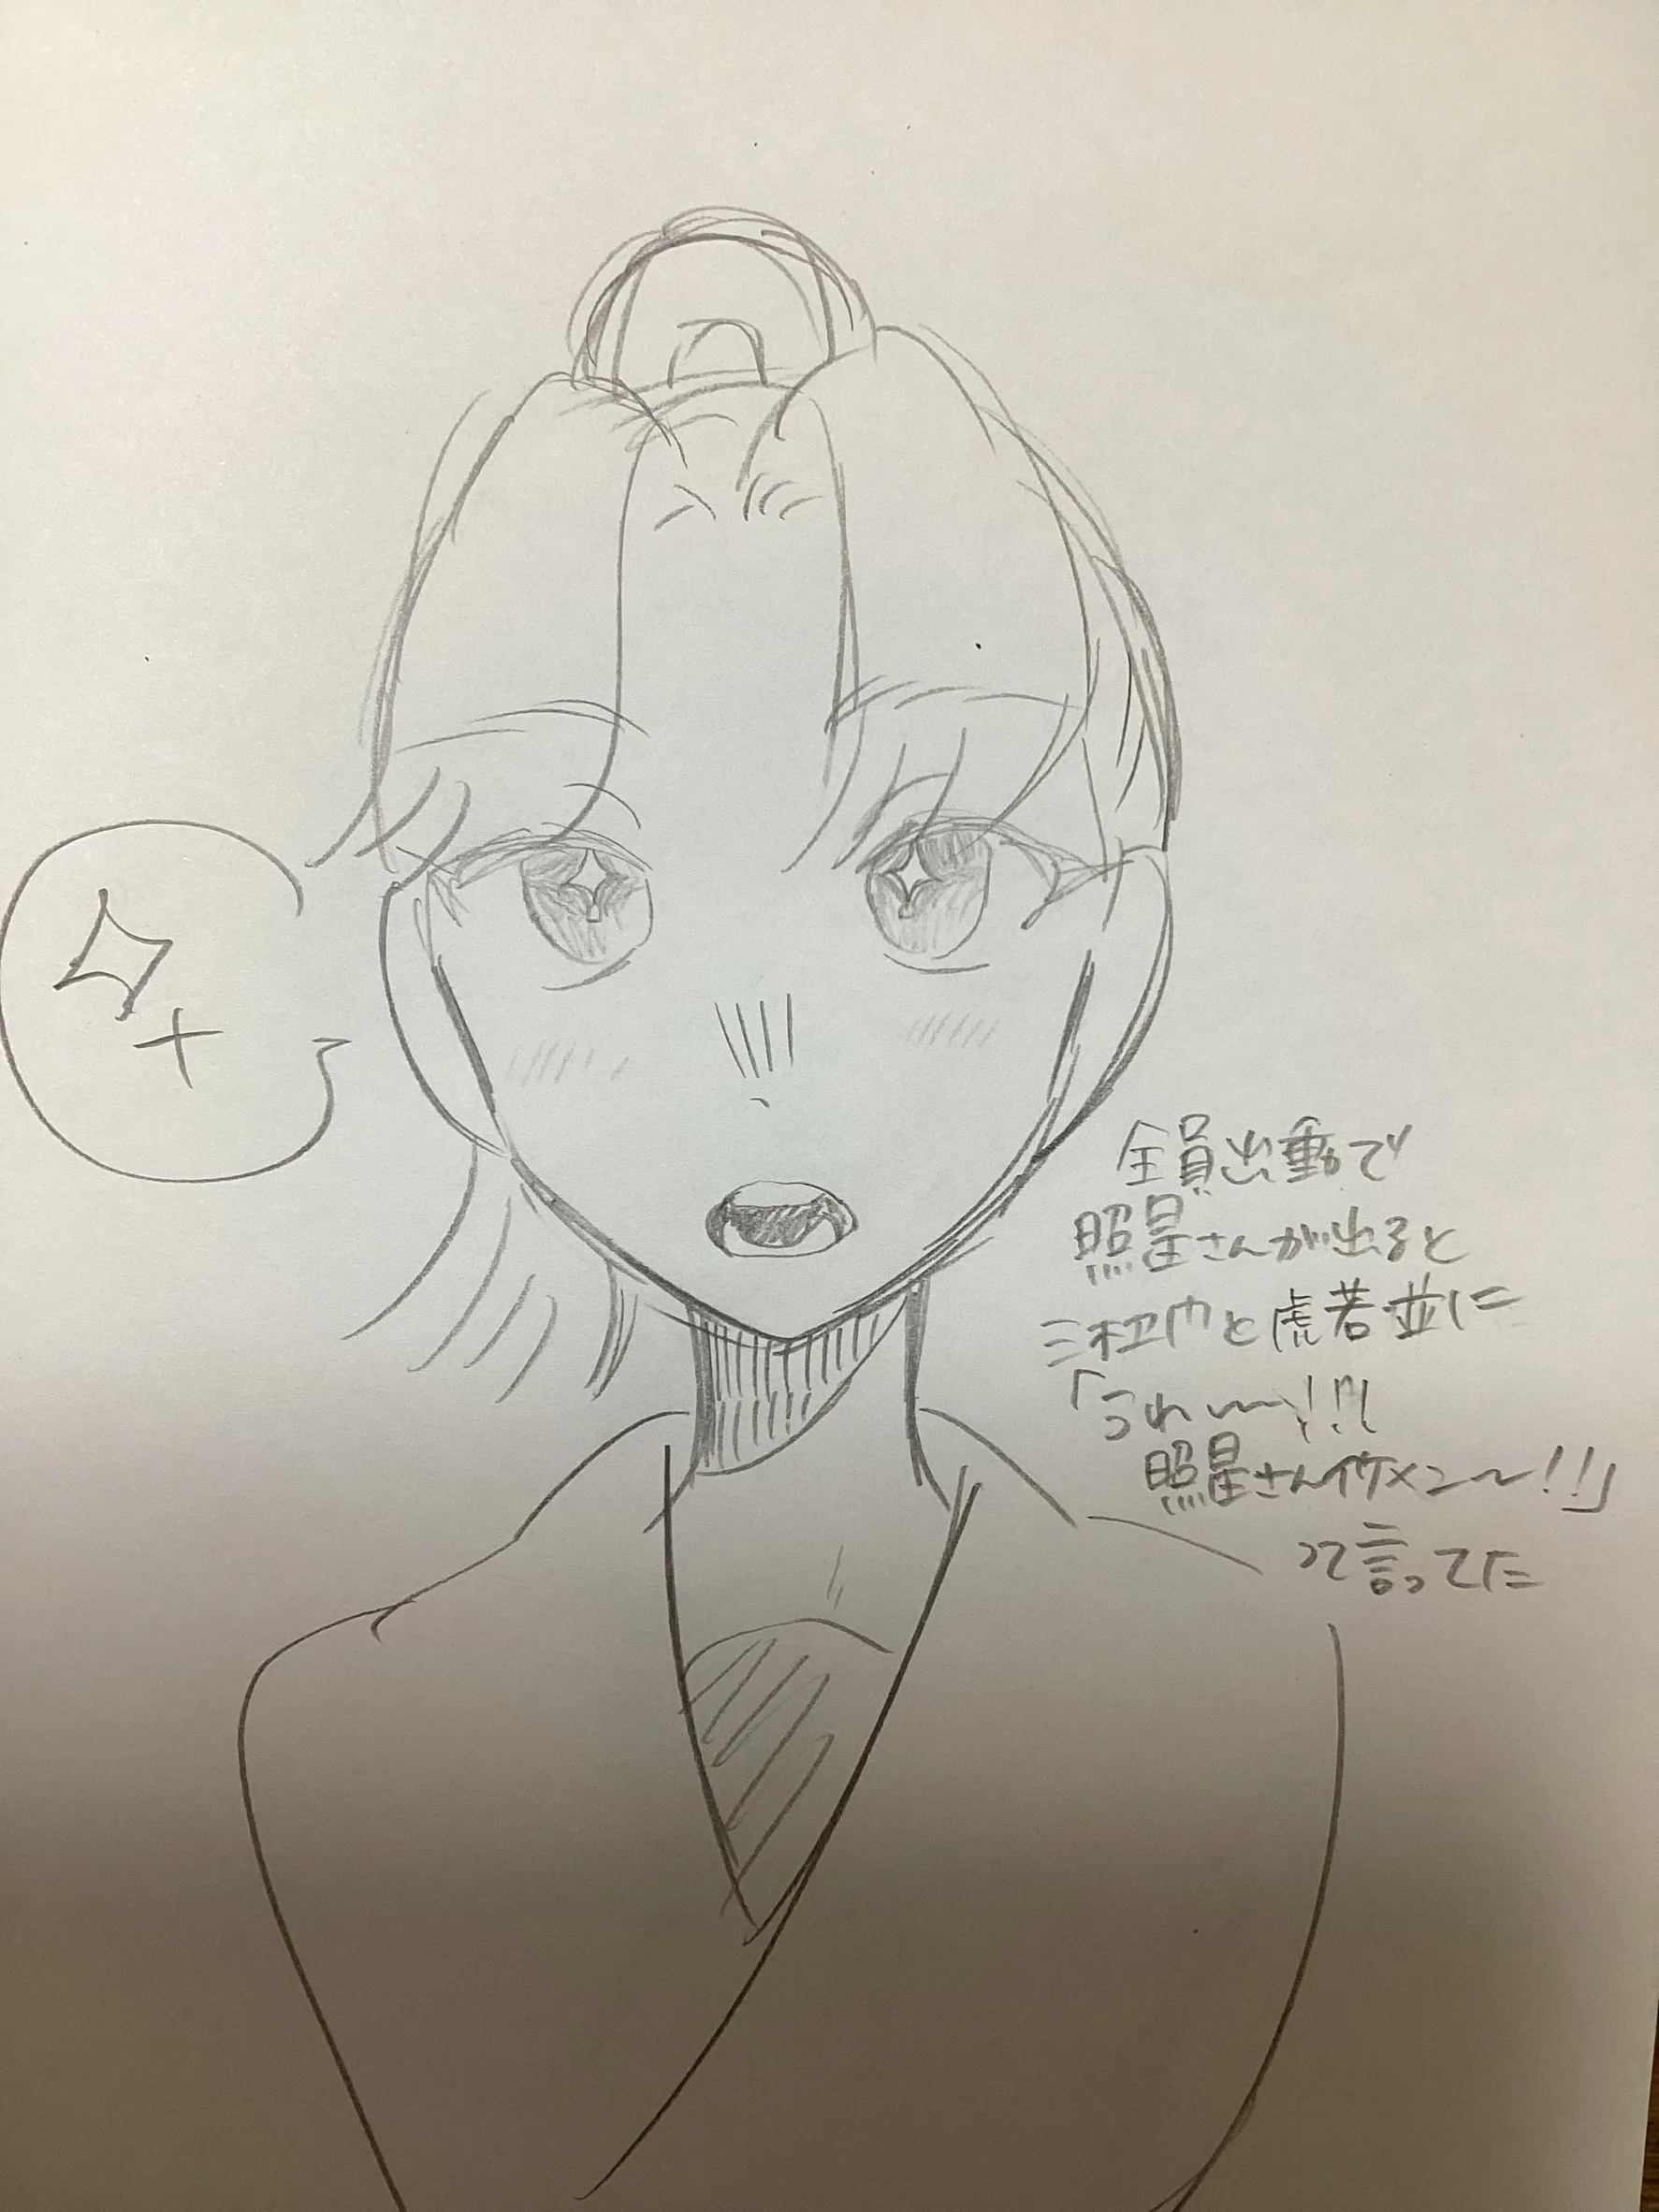 全員出動で
照星さんが出ると
三木ヱ門と虎若並に
「うわ〜〜!!!
照星さんイケメン〜!!」
って言ってた